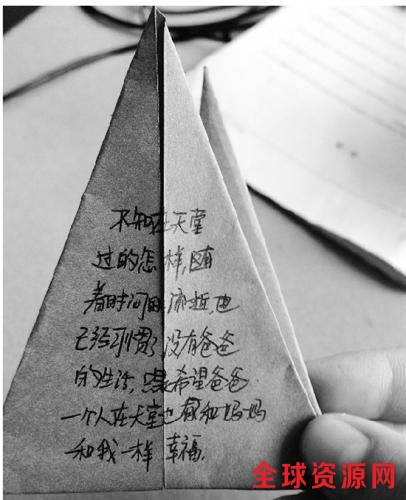 不知在天堂
过的怎样,随
着时间的流逝,也
已经习惯了没有爸爸
的生活,只是希望爸爸
一个人在天堂也能和妈妈
和我一样幸福.
全球资源网